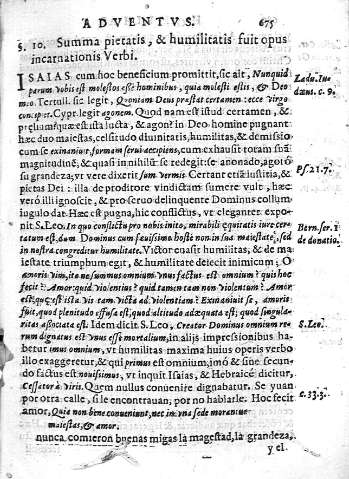 ADVENTVS. 675
§. 10. Summa pietatis, & humilitatis fuit opus
incarnationis Verbi.
ISAIAS cum hoc beneficium promittit, sic ait, Nunquid
parum vobis est molestos esse hominibus, quia molesti estis, & Deo
Tertull. sic legit, Quoniam Deus præstat certamen: ecce virgo
concipiet. Cypr. legit agonem. Quod nam est istud certamen, &
quæ est ista lucta, & agon? in Deo homine pugnant
hæc duo maiestas, celsitudo diuinitatis, humilitas, & demissio
cum se exinaniuit formam serui accipiens, cum exhausit totam suã
magnitudinẽ, & quasi in nihilũ se redegit: se anonadò, agotó
su grandeza, vt vere dixerit Sum vermis. Certant etiã iustitia, &
pietas Dei: illa de proditore vindictam sumere vult, hæc
verò illi ignoscit, & pro seruo delinquente Dominus collum
iugulo dat. Hæc est pugna, hic conflictus, vt eleganter expo-
nit S. Leo. In quo conflictu pro nobis inito, mirabili æquitatis iure cer-
tatum est, dum Dominus cum sæuissimo hoste non in sua maiestate, sed
in nostra congreditur humilitate. Victor euasit humilitas, & de ma-
iestate triumphum egit, & humilitate deiecit inimicum: O
amoris vim, ita ne summus omnium vnus factus est omnium? quis hoc
fecit? Amor: quid violentius? quid tamen tam non violentum? Amor
est: quæ est ista vis tam victa ad violentiam? Exinaniuit se, amoris
fuit, quod plenitudo effusa est, quod altitudo adæquata est; quod singula-
ritas associata est. Idem dicit S. Leo, Creator Dominus omnium re-
rum dignatus est vnus esse mortalium, in alijs impressionibus ha-
betur imus omnium, vt humilitas maxima huius operis verbo
illo exaggeretur, & qui primus est omnium, imò & sine secun-
do factus est nouissimus, vt inquit Isaias, & Hebraicè dicitur,
Cessator à viris. Quem nullus conuenire dignabatur. Se yuan
por otra calle, si le encontrauan, por no hablarle. Hoc fecit
amor, Quia non bene conueniunt, nec in vna sede morantur
maiestas, & amor.
nunca comieron buenas migas la magestad, la grandeza,
y el
c. 9.
Ps. 21. 7.
Bern. ser. 1
de donatio.
S. Leo.
c. 33. 3.